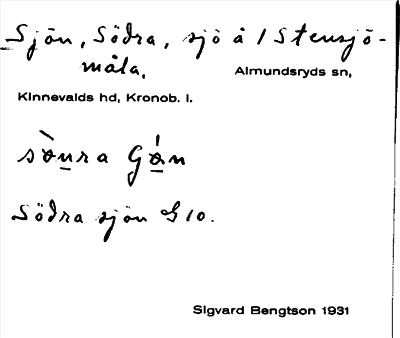 Sjön, Södra, sjö å 1 Stensjö-
måla.
Almundsryds sn,
Kinnevalds hd, Kronob. l.
sònra Gón
Södra sjön G 10.
Sigvard Bengtson 1931